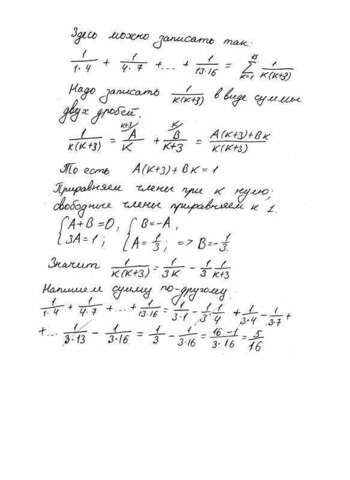 Здесь можно записать так:
1/(1·4) + 1/(4·7) + ... + 1/(13·16) = ∑_{k=1}^{13} 1/(k(k+3))
Надо записать 1/(k(k+3)) в виде суммы
двух дробей.
1/(k(k+3)) = A^{k+3}/k + B^{k}/(k+3) = (A(k+3)+Bk)/(k(k+3))
То есть A(k+3)+Bk = 1
Приравняем члены при k нулю;
свободные члены приравняем к 1.
{A+B=0, {B=-A,
{3A=1; {A=1/3; => B=-1/3.
Значит 1/(k(k+3)) = 1/(3k) - 1/3 · 1/(k+3)
Напишем сумму по-другому:
1/(1·4) + 1/(4·7) + ... + 1/(13·16) = 1/(3·1) - 1/3·1/4 + 1/(3·4) - 1/(3·7) +
+... 1/(3·13) - 1/(3·16) = 1/3 - 1/(3·16) = (16-1)/(3·16) = 5/16